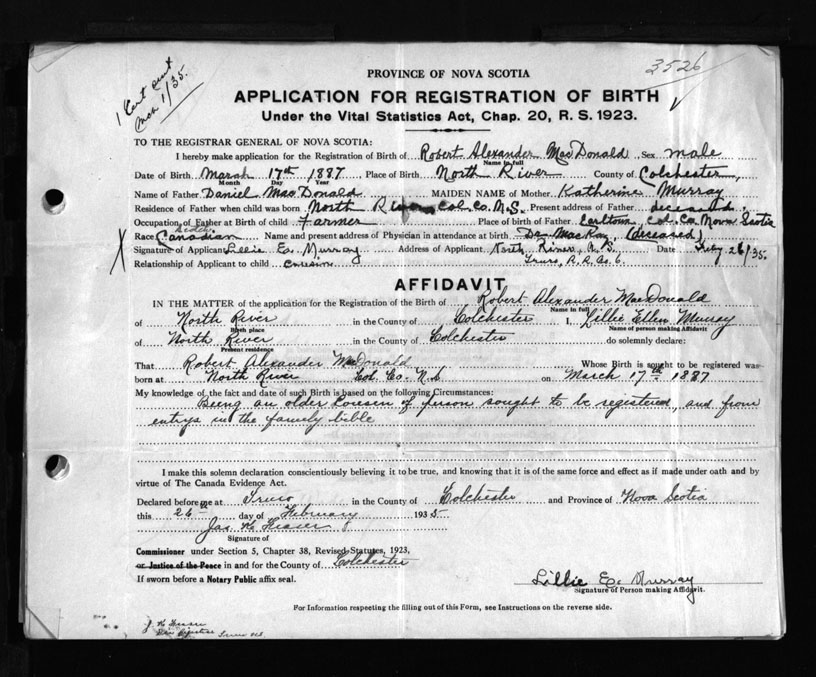 1 Cert sent
Mar 1/35.
3526
PROVINCE OF NOVA SCOTIA
APPLICATION FOR REGISTRATION OF BIRTH
Under the Vital Statistics Act, Chap. 20, R. S. 1923.
TO THE REGISTRAR GENERAL OF NOVA SCOTIA:
I hereby make application for the Registration of Birth of Robert Alexander MacDonald Sex male
Name in full
Date of Birth March 17th 1887 Place of Birth North River County of Colchester
Month Day Year
Name of Father Daniel MacDonald MAIDEN NAME of Mother Katherine Murray
Residence of Father when child was born North River Col. Co. N.S. Present address of Father deceased
Occupation of Father at Birth of child Farmer Place of Birth of Father Earltown, Col. Co. Nova Scotia
Race Canadian Name and present address of Physician in attendance at birth Dr. MacKay, (deceased)
Signature of Applicant Lillie E. Murray Address of Applicant North River, N.S. Date Feby 26/35.
Relationship of Applicant to child cousin Truro, R. R. No. 6.
AFFIDAVIT
IN THE MATTER of the application for the Registration of the Birth of Robert Alexander MacDonald
Name in full
of North River in the County of Colchester I, Lillie Ellen Murray
Birth place Name of person making Affidavit
of North River in the County of Colchester do solemnly declare:
Present residence
That Robert Alexander MacDonald Whose Birth is sought to be registered was
born at North River Col. Co. N.S on March 17th 1887
My knowledge of the fact and date of such Birth is based on the following Circumstances:
Being an older Cousen of person sought to be registered, and from
entrys in the family bible
I make this solemn declaration conscientiously believing it to be true, and knowing that it is of the same force and effect as if made under oath and by
virtue of The Canada Evidence Act.
Declared before me at Truro in the County of Colchester and Province of Nova Scotia
this 26th day of February 1935
Jas H
Signature of
Commissioner under Section 5, Chapter 38, Revised Statutes, 1923,
or Justice of the Peace in and for the County of Colchester
If sworn before a Notary Public affix seal.
Lillie E. Murray
Signature of Person making Affidavit.
For Information respecting the filling out of this Form, see Instructions on the reverse side.
Truro N.S.